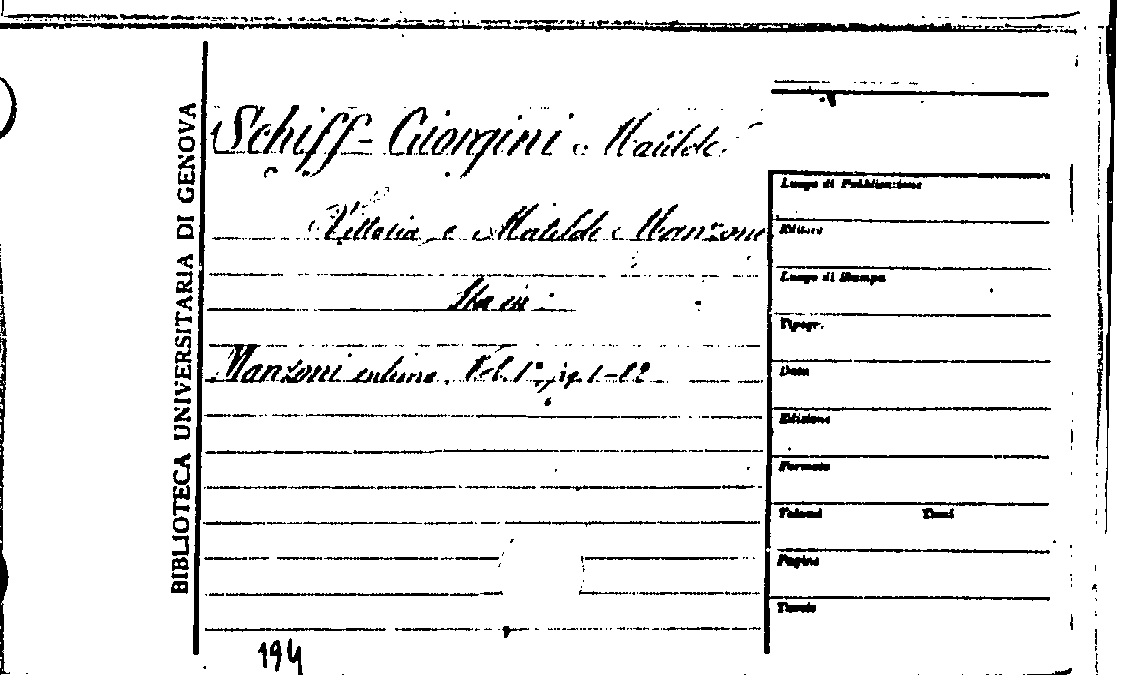 BIBLIOTECA UNIVERSITARIA DI GENOVA
Schiff-Giorgini Matilde
Vittoria e Matilde Manzoni
Sta in:
Manzoni intimo. Vol. 1º, pg. 1-82
194
Luogo di Pubblicazione
Editore
Luogo di Stampa
Tipogr.
Data
Edizione
Formato
Volumi Tomi
Pagine
Tavole